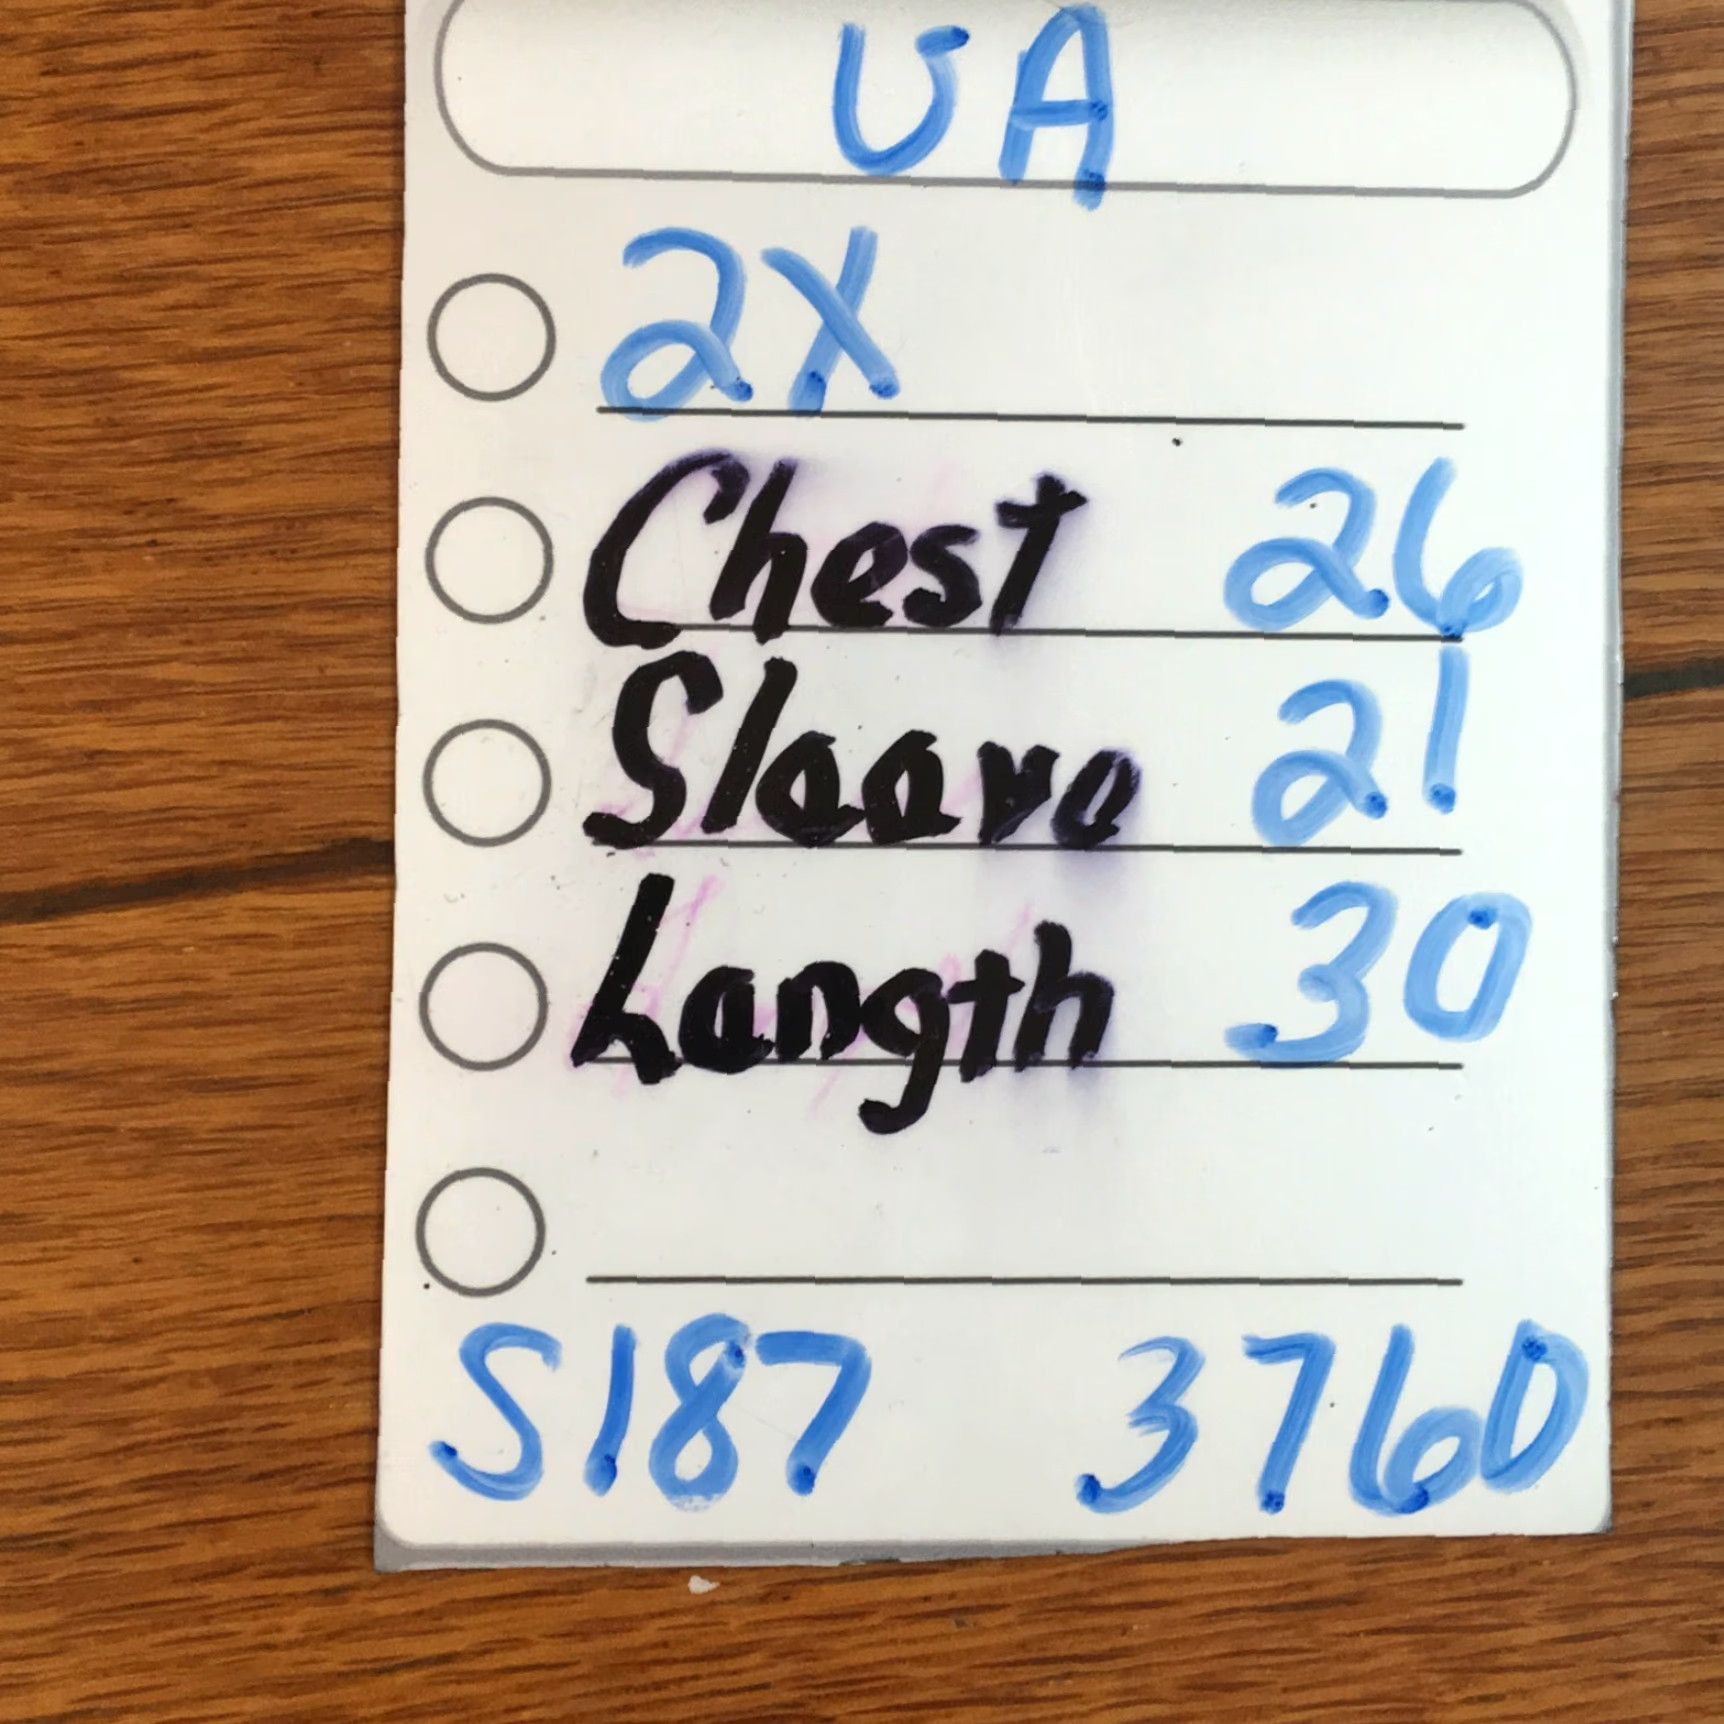 UA
2X
Chest 26
Sleeve 21
Length 30
S187 3760